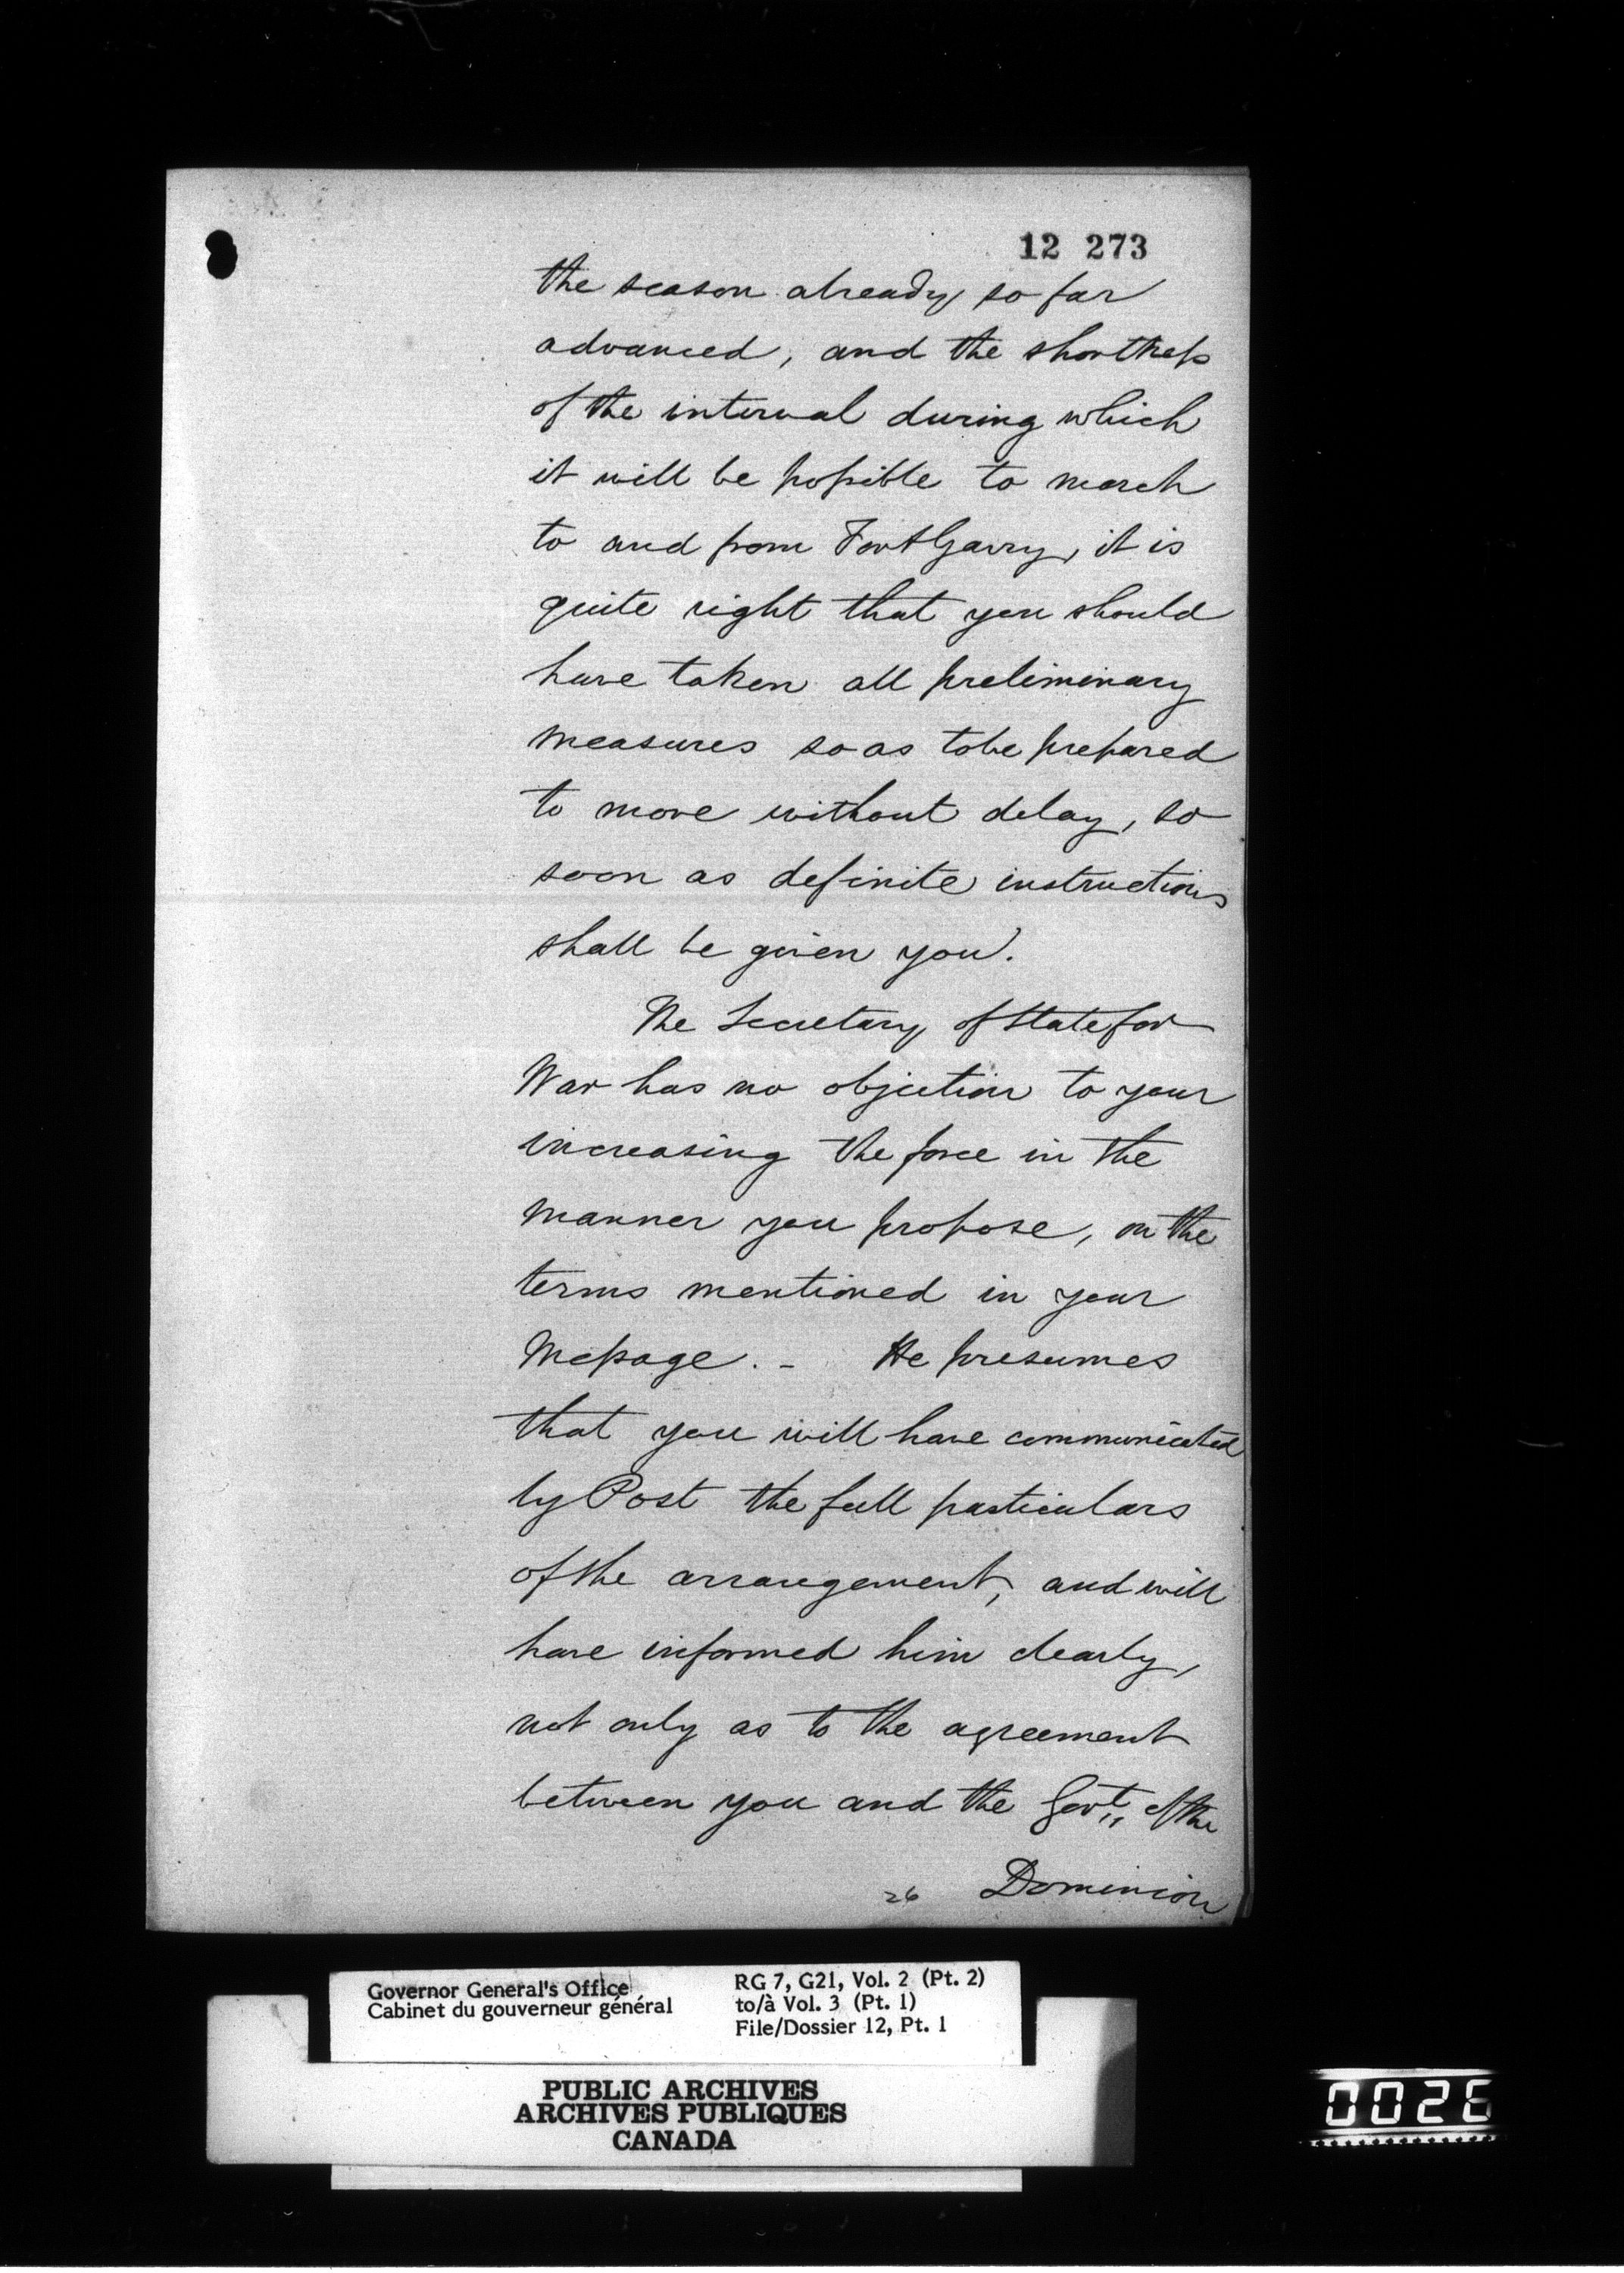 12 273
the season already so far
advanced, and the shortness
of the interval during which
it will be possible to march
to and from Fort Garry, it is
quite right that you should
have taken all preliminary
measures so as to be prepared
to move without delay, so
soon as definite instructions
shall be given you.
The Secretary of State for
War has no objection to your
increasing the force in the
manner you propose, on the
terms mentioned in your
Message. - He presumes
that you will have communicated
by Post the full particulars
of the arrangement, and will
have informed him clearly,
not only as to the agreement
between you and the Govt. of the
26 Dominion
Governor General's Office
Cabinet du gouverneur général
RG 7, G21, Vol. 2 (Pt. 2)
to/à Vol. 3 (Pt. 1)
File/Dossier 12, Pt. 1
PUBLIC ARCHIVES
ARCHIVES PUBLIQUES
CANADA
0026